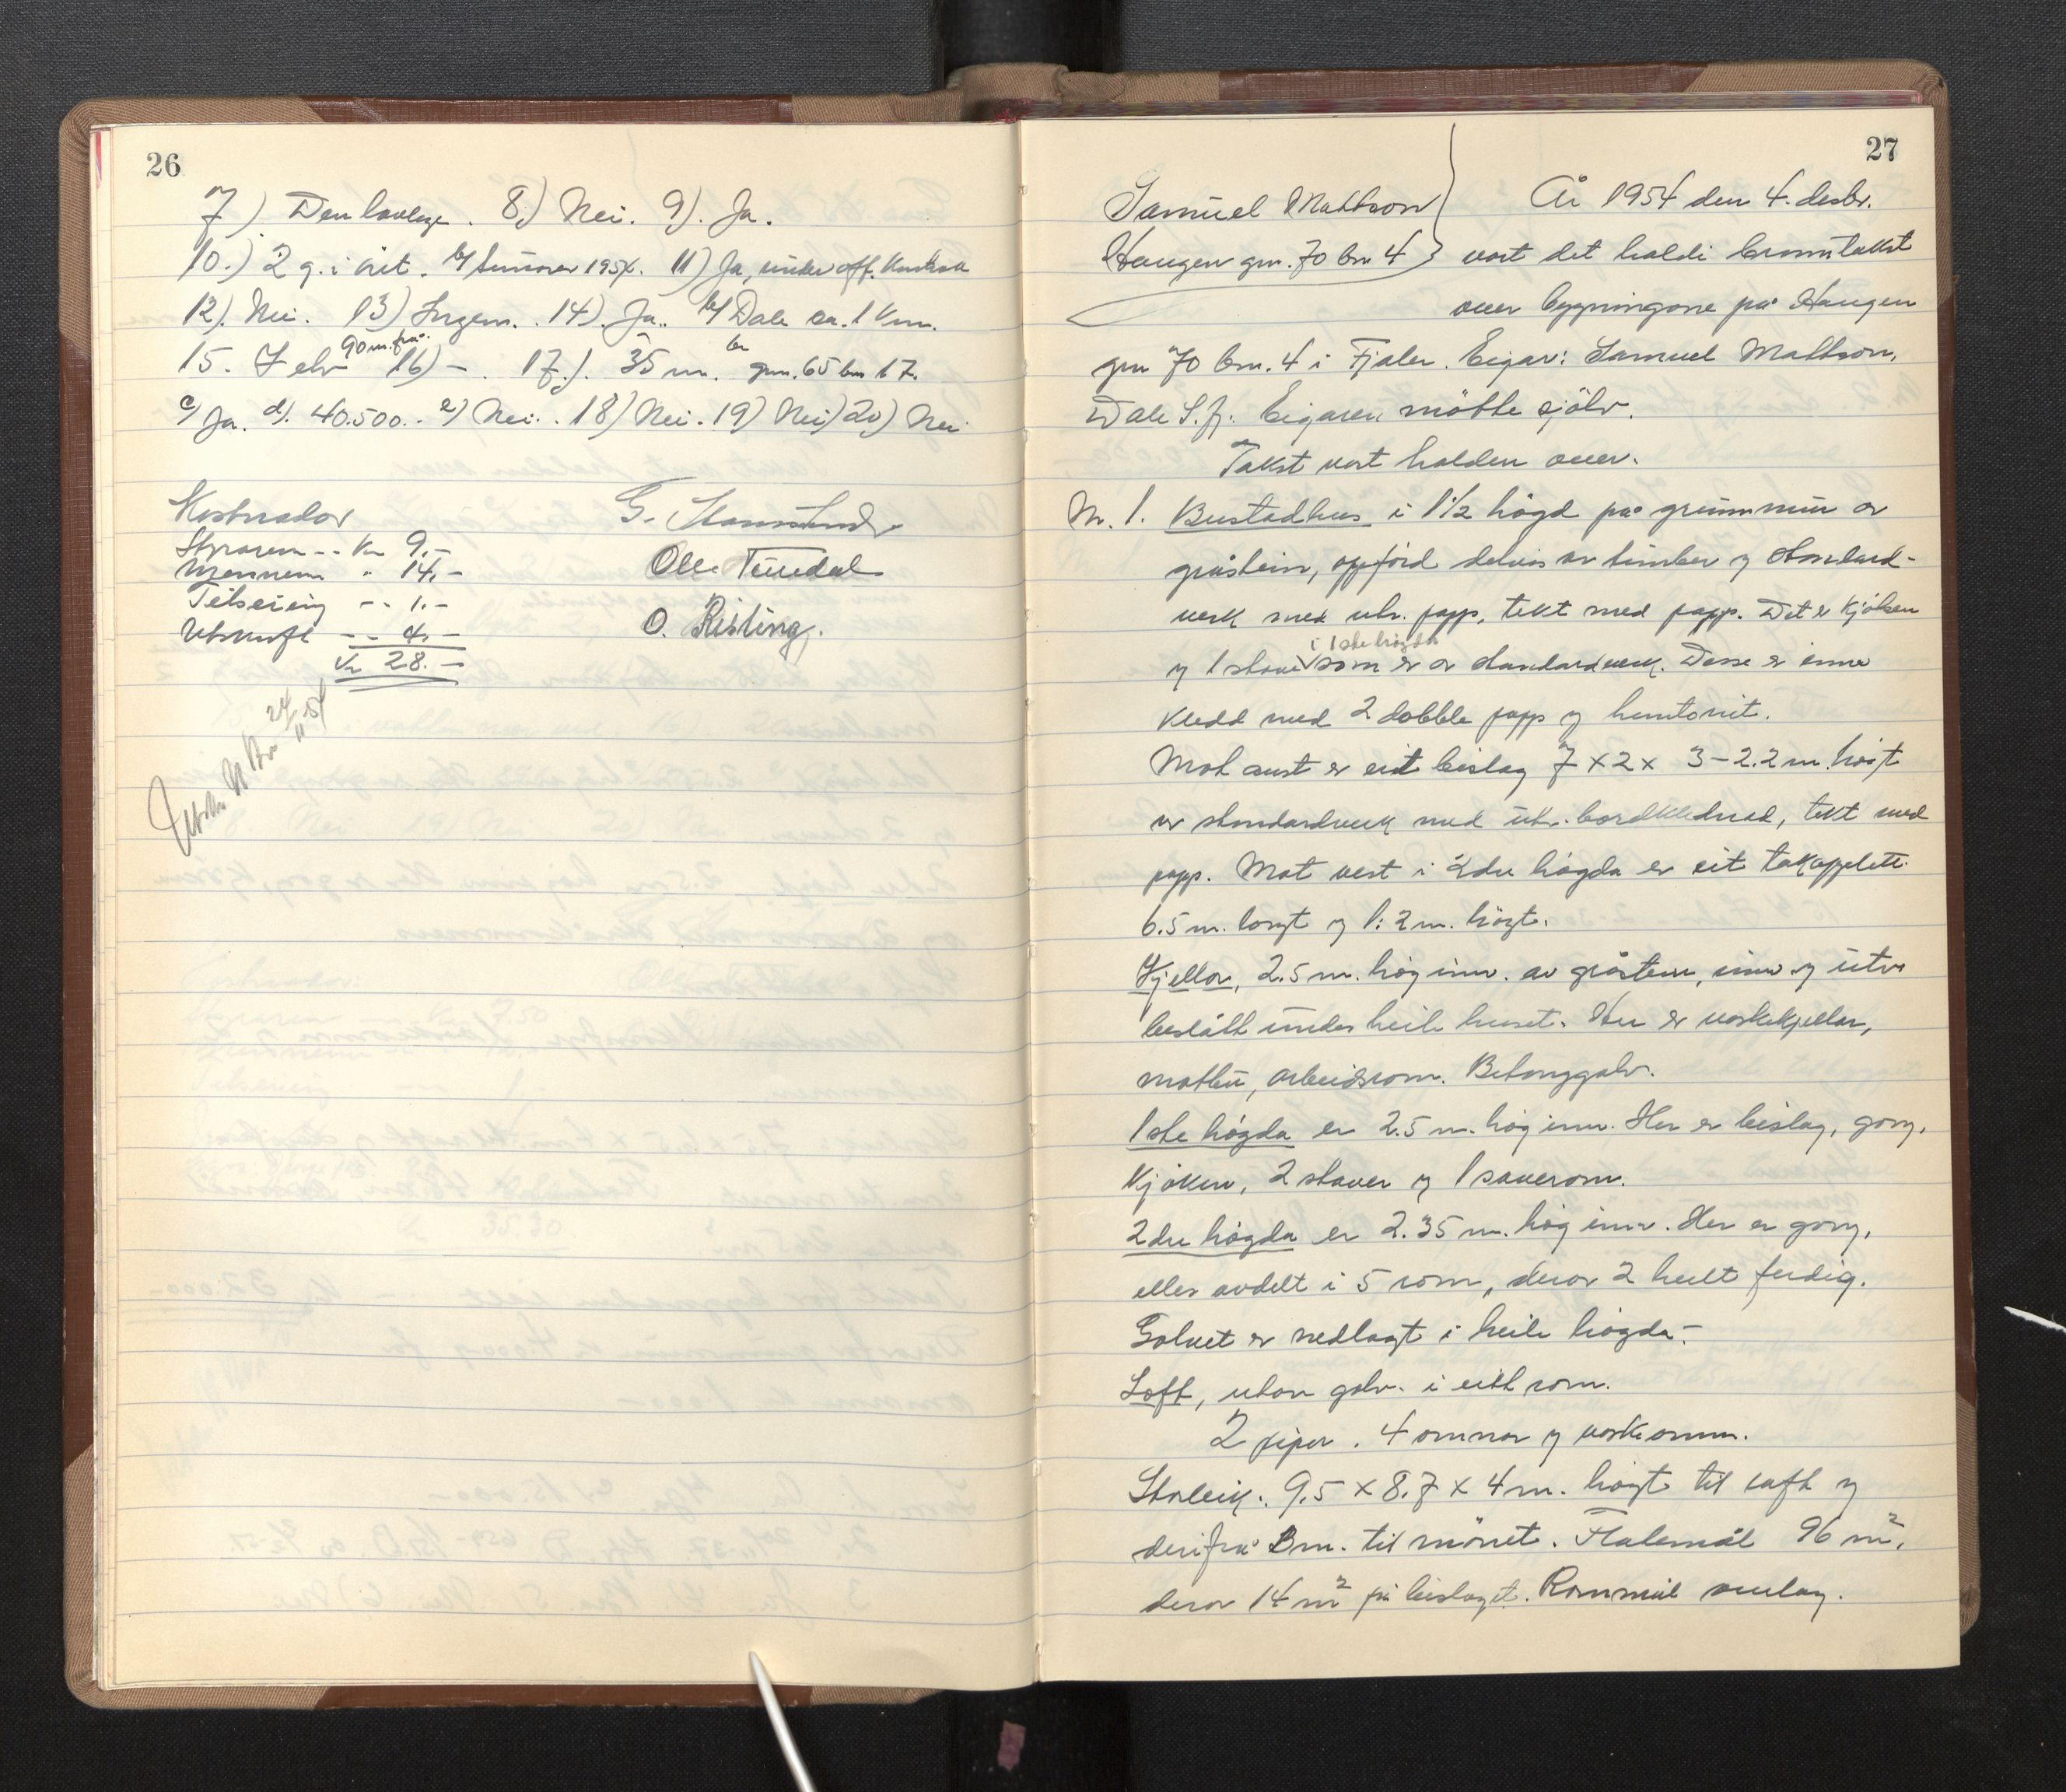 26
7) Den lovlege. 8) Nei. 9). Ja.
10.) 2 g. i året. b/ sumar 1954. 11) Ja, under off. kontroll
12). Nei. 13) Ingen. 14). Ja. b/ Dale ca. 1 km.
90 m. frå.
15. Elv 16) –. 17.). 35 m. b. gnr. 65 bn 17.
c) Ja. d). 40.500.. e) Nei. . 18) Nei. 19) Nei) 20) Nei
Kostnader
Styraren -- Kr 9.-
Mennene " 14.-
Teljeing -- 1.-
Utskrift -- 4.-
Kr 28.-
G.
Olle Tuedal
O. Risting.
Utskr. 24/11-54
27
Samuel Mattson
Haugen gnr. 70 bn 4
År 1954 den 4. desbr.
vart det haldi branntakst
over bygningane på Haugen
gnr 70 bnr. 4 i Fjaler. Eigar: Samuel Mattson,
Dale S.fj. Eigaren møtte sjölv.
Takst vart halden over.
Nr. 1. Bustadhus i 1½ högd på grunnmur av
gråstein, oppförd delvis av timber og standard-
verk med utv. papp, tekt med papp. Det er kjöken
i 1ste högda
og 1 stove som er av standardverk. Desse er innv
kledd med 2 dobble papp og huntonit.
Mot aust er eit beislag 7 x 2 x 3-2.2 m. högt
av standardverk med utv. bordklednad, tekt med
papp. Mot vest i 2dre högda er eit takopplett
6.5 m. langt og 1.2 m. högt.
Kjellar, 2.5 m. hög innv. av gråstein, innv og utv
beslått under heile huset. Her er vaskekjellar,
matbu, arbeidsrom. Betonggolv.
1ste högda er 2.5 m. hög innv. Her er beislag, gang,
Kjöken, 2 stover og 1 soverom.
2dre högda er 2.35 m. hög innv. Her er gang,
elles avdelt i 5 rom, derav 2 heilt ferdig.
Golvet er nedlagt i heile högda.
Loft, utan golv. i eitt rom.
2 piper. 4 omnar og vaskeomn.
Storleik. 9.5 x 8.7 x 4 m. högt til raft og
derifrå 3 m. til mönet. Flatemål 96 m²,
derav 14 m² på beislaget. Rommål omlag.